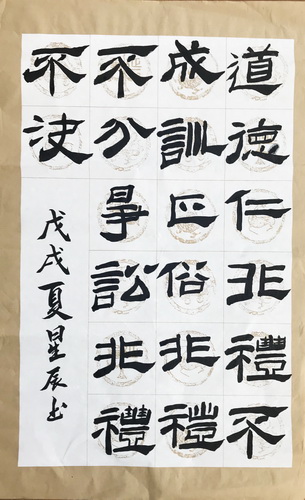 道德仁非禮不
成訓正俗非禮
不分爭訟非禮
不決
戊戌夏星辰书